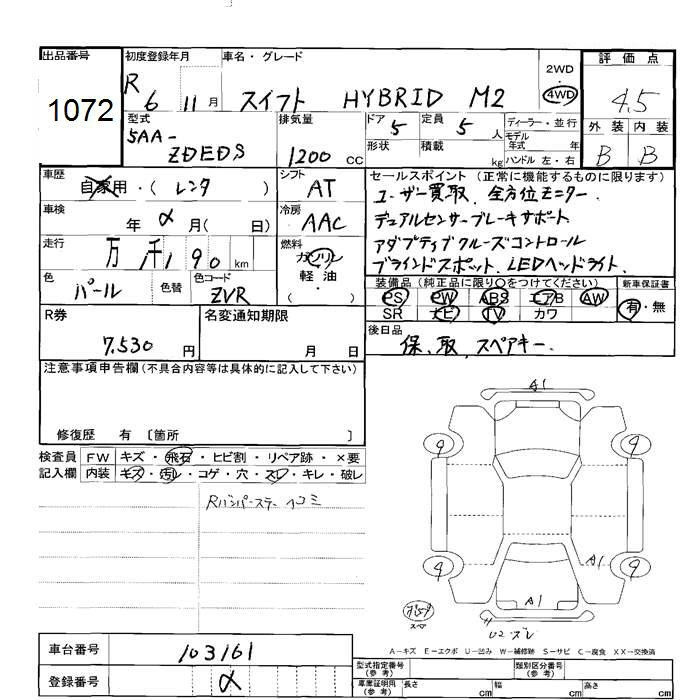 出品番号
1072
初度登録年月
R 6年 11月
車名・グレード
スイフト HYBRID M2
2WD
・
4WD
評価点
4.5
外装 内装
B B
型式
5AA-
ZDEDS
排気量
1200 cc
ドア 5
定員 5 人
形状
積載 kg
ディーラー・並行
モデル年式 年
ハンドル 左・右
車歴
自家用・( レンタ )
シフト
AT
車検
年 月( 日)
冷房
AAC
走行
万 千 190 km
燃料
ガソリン
軽油
( ・ )
色
パール
色替
色コード
ZVR
セールスポイント (正常に機能するものに限ります)
ユーザー買取、全方位モニター、
デュアルセンサーブレーキサポート
アダプティブクルーズコントロール
ブラインドスポット、LEDヘッドライト、
装備品 (純正品に限り○をつけてください)
PS PW ABS エアB AW
SR ナビ TV カワ
新車保証書
有・無
R券
7.530 円
名変通知期限
月 日
後日品
保、取、スペアキー、
注意事項申告欄 (不具合内容等は具体的に記入して下さい)
修復歴 有 〔箇所 〕
検査員
記入欄
FW キズ・飛石・ヒビ割・リペア跡・×要
内装 キズ・汚れ・コゲ・穴・スレ・キレ・破レ
Rバンパーステー ヘコミ
A1
9 9
9 A1 9
A1
U2 ズレ
スペア
A-キズ E-エクボ U-凹み W-補修跡 S-サビ C-腐食 XX-交換済
車台番号
103161
登録番号
型式指定番号
(参考)
類別区分番号
(参考)
車庫証明用
(参考)
長さ cm
幅 cm
高さ cm